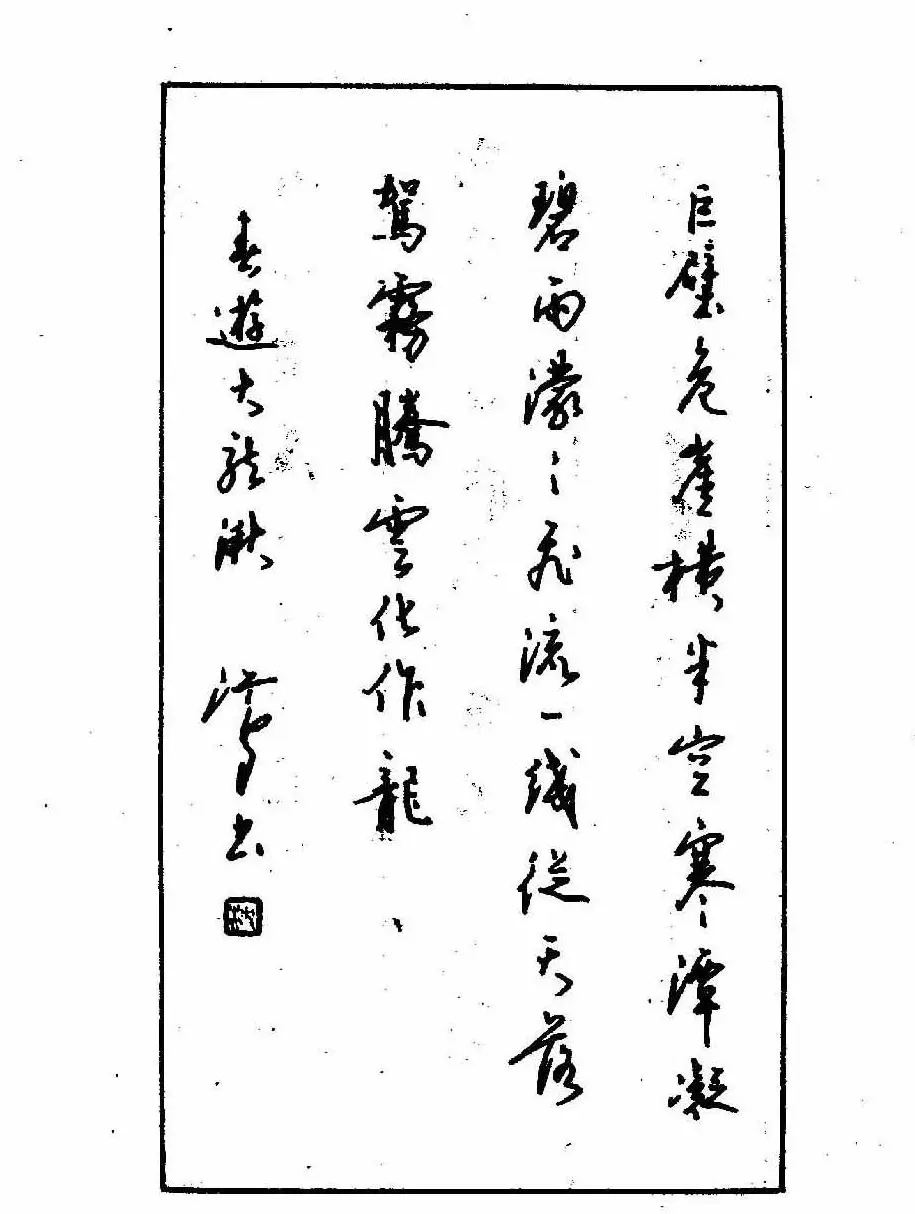 巨壁危崖橫半空寒潭凝
碧雨濛〻飛流一綫從天落
駕霧騰雲化作龍
春遊大龍湫 書